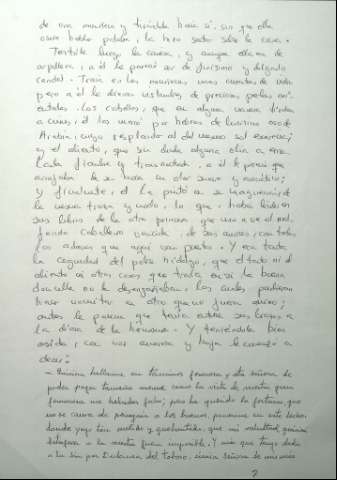 de una muñeca y tirándola hacia sí, sin que ella
osase hablar palabra, la hizo sentar sobre la cama.
Tentóle luego la camisa, y aunque ella era de
arpillera, a él le pareció ser de finísimo y delgado
cendal. Traía en las muñecas unas cuentas de vidro
pero a él le dieron vislumbres de preciosas perlas ori-
entales. Los cabellos, que en alguna manera tiraban
a crines, él los marcó por hebras de lucidísimo oro de
Arabia, cuyo resplandor al del mesmo sol escurecía;
y el aliento, que sin duda alguna olía a ensa-
lada fiambre y trasnochada, a él le pareció que
arrojaba de su boca un olor suave y aromático;
y finalmente, él la pintó en su imaginación, de
la misma traza y modo, lo que había leído en
sus libros de la otra princesa que vino a ver el mal
ferido caballero vencida de sus amores, con todos
los adornos que aquí van puestos. Y era tanta
la ceguedad del pobre hidalgo, que el tacto ni el
aliento ni otras cosas que traía en sí la buena
doncella no le desengañaban, las cuales pudieran
hacer vomitar a otro que no fuera arriero;
antes le parecía que tenía entre sus brazos a
la diosa de la hermosura. Y teniéndola bien
asida, con voz amorosa y baja le comenzó a
decir:
- Quisiera hallarme en términos, fermosa y alta señora, de
poder pagar tamaña merced como la vista de vuestra gran
fermosura me habedes fecho; pero ha querido la fortuna, que
no se cansa de perseguir a los buenos, ponerme en este lecho,
donde yago tan molido y quebrantado, que mi voluntad quisiera
satisfacer a la vuestra fuera imposible. Y más que tengo dada
a la sin par Dulcinea del Toboso, única señora de mis más
2